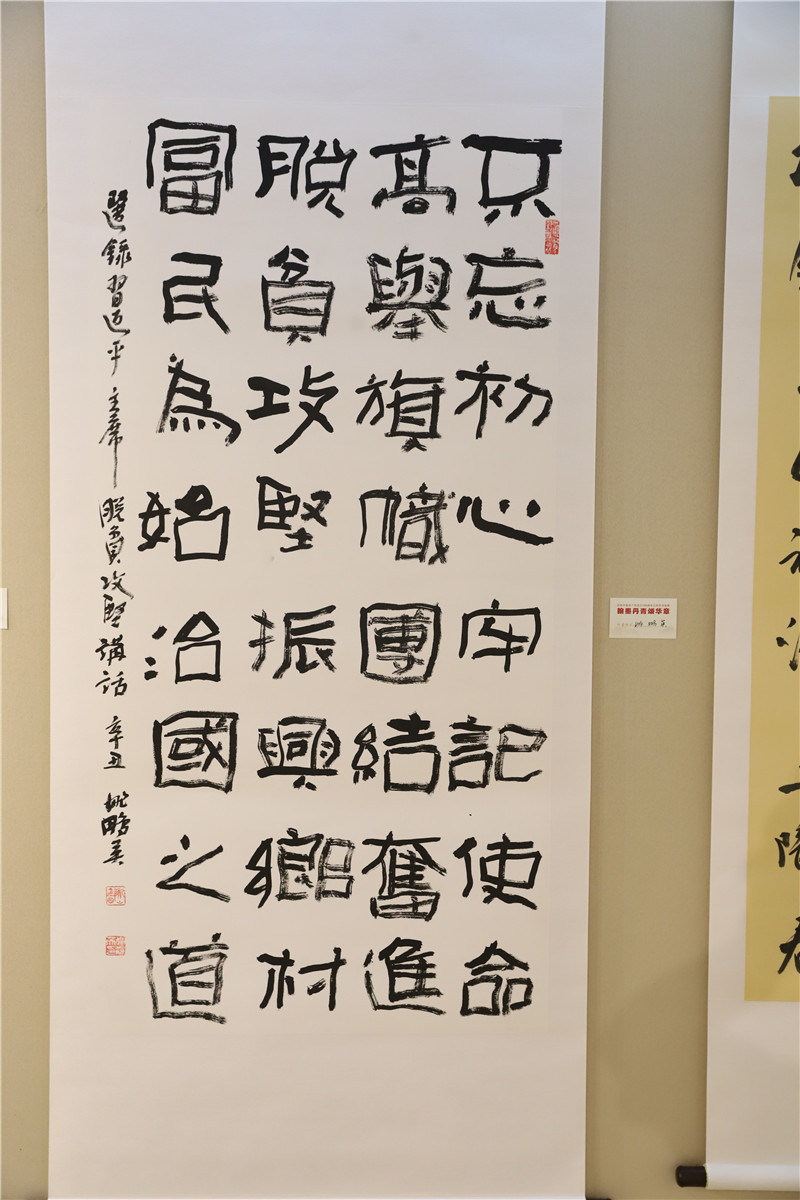 不忘初心牢記使命
高舉旗幟團結奮進
脫貧攻堅振興鄉村
富民為始治國之道
選錄習近平主席脫貧攻堅講話 辛丑 姚
翰墨丹青頌华章